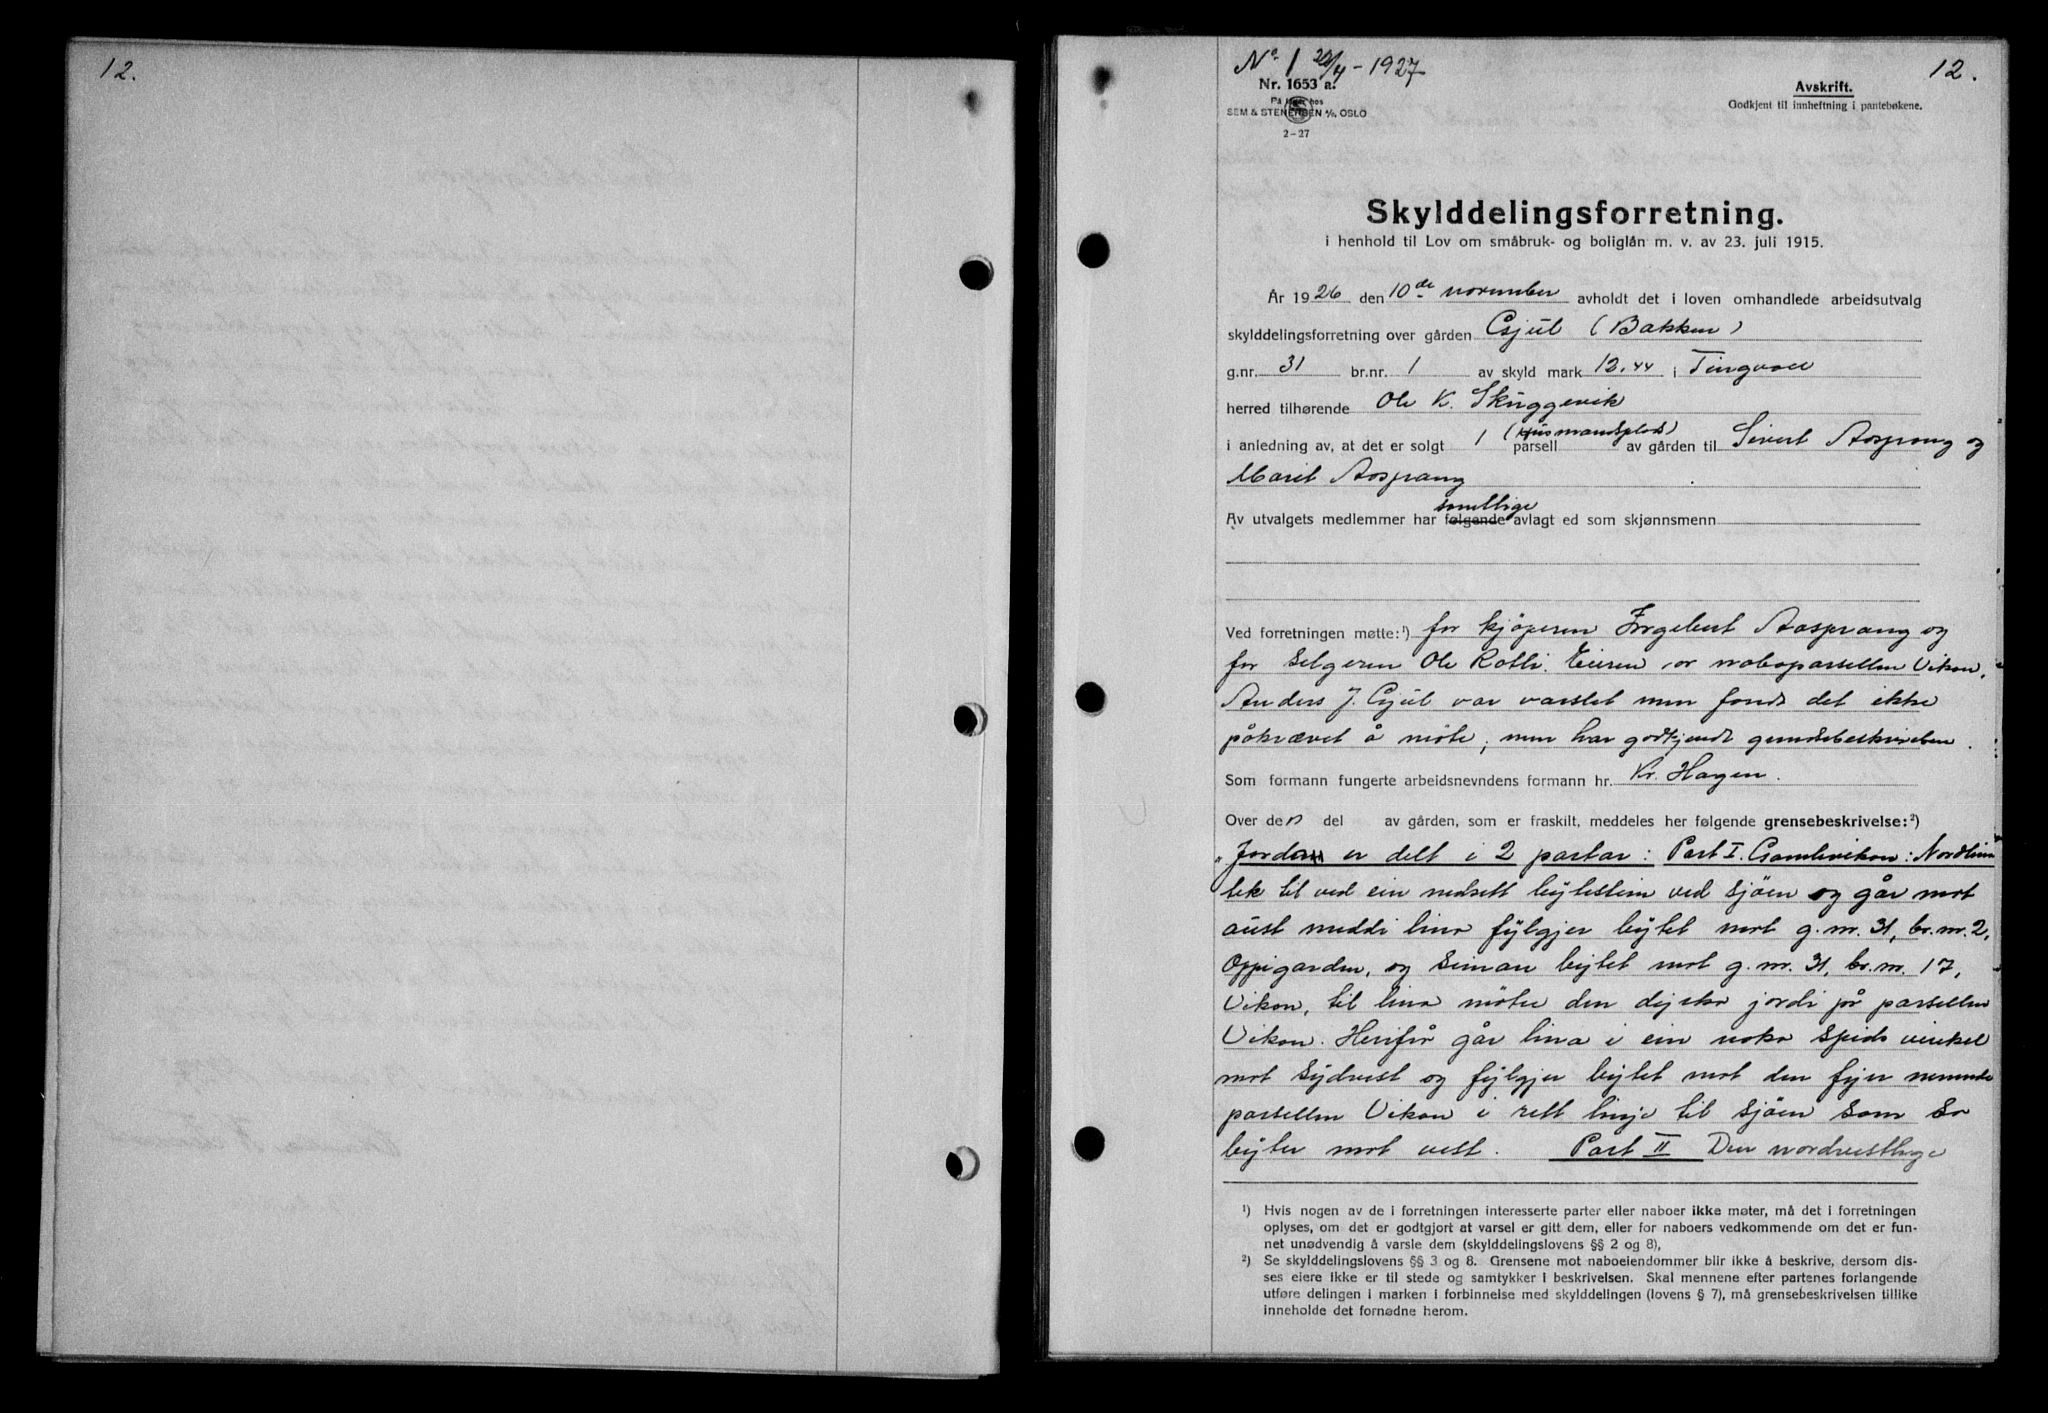 12.
No 1 22/4 - 1927
12.
Nr. 1653 a.
På lager hos
SEM & STENERSEN A/S, OSLO
2-27
Avskrift.
Godkjent til innheftning i pantebøkene.
Skylddelingsforretning.
i henhold til Lov om småbruk- og boliglån m. v. av 23. juli 1915.
År 1926 den 10de november avholdt det i loven omhandlede arbeidsutvalg
skylddelingsforretning over gården Gjúl (Bakken)
g.nr. 31 br.nr. 1 av skyld mark 12.44 i Tingvoll
herred tilhørende Ole K. Skúggevik
(Húsmandsplads)
i anledning av, at det er solgt 1 parsell av gården til Sivert Aasprang og
Marit Aasprang
samtlige
Av utvalgets medlemmer har følgende avlagt ed som skjønnsmenn
Ved forretningen møtte:¹) for kjøperen Ingebert Aasprang og
for selgeren Ole Rotli. Eieren av naboparsellen Vikan,
Anders J. Gjúl var varslet men fands det ikke
påkrævet å møte, men har godkjendt
Som formann fungerte arbeidsnevndens formann hr. Kr. Hagen.
Over den del av gården, som er fraskilt, meddeles her følgende grensebeskrivelse:²)
"Jorden er delt i 2 partar: Part I. Gamlevikan: Nordlina
tek til ved ein nedsett býtestein ved sjøen og går mot
aust meddi lina fýlgjer býtet mot g. nr. 31, br. nr. 2,
Oppigarden, og seinare býtet mot g. nr. 31, br. nr. 17,
Vikan, til lina møter den dýrka jordi på parsellen
Vikan. Herifrå går lina i ein noko spids vinkel
mot sýdvest og fýlgjer býtet mot den fýr nemnde
parsellen Vikan i rett linje til sjøen som so
býter mot vest. Part II Den nordvestlege
¹) Hvis nogen av de i forretningen interesserte parter eller naboer ikke møter, må det i forretningen
oplyses, om det er godtgjort at varsel er gitt dem, eller for naboers vedkommende om det er fun-
net unødvendig å varsle dem (skylddelingslovens §§ 2 og 8),
²) Se skylddelingslovens §§ 3 og 8. Grensene mot naboeiendommer blir ikke å beskrive, dersom dis-
ses eiere ikke er til stede og samtykker i beskrivelsen. Skal mennene efter partenes forlangende
utføre delingen i marken i forbinnelse med skylddelingen (lovens § 7), må grensebeskrivelsen tillike
inneholde det fornødne herom.